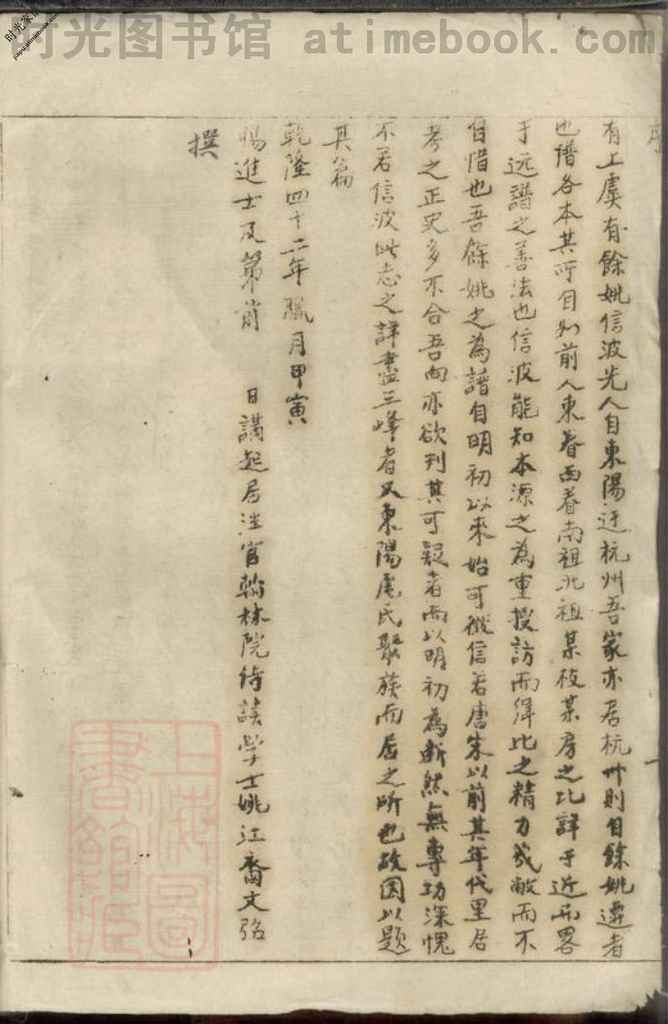 时光图书馆 atimebook.com
有上虞有餘姚信波先人自東陽迁杭州吾家亦居杭州則自餘姚遷者
也譜各本其所自如前人東眷西眷南祖北祖某枝某房之比詳于近而畧
于远譜之善法也信波能知本源之為重搜訪而得比之精力我敝而不
自惜也吾餘姚之為譜自明初以來始可徵信若唐宋以前其年代里居
考之正史多不合吾向亦欲刊其可疑者而以明初為断然無專功深愧
不若信波此志之詳盡三峰者又東陽盧氏聚族而居之所也故因以題
其篇
乾隆四十二年臘月甲寅
賜進士及第前 日講起居注官翰林院侍讀學士姚江裔文弨
撰
上海圖書館藏